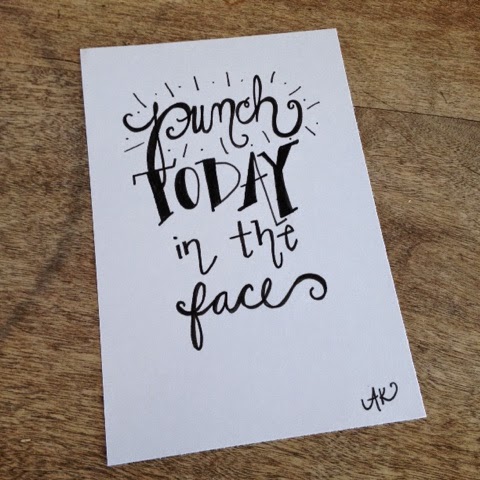 punch
TODAY
in the
face
AK